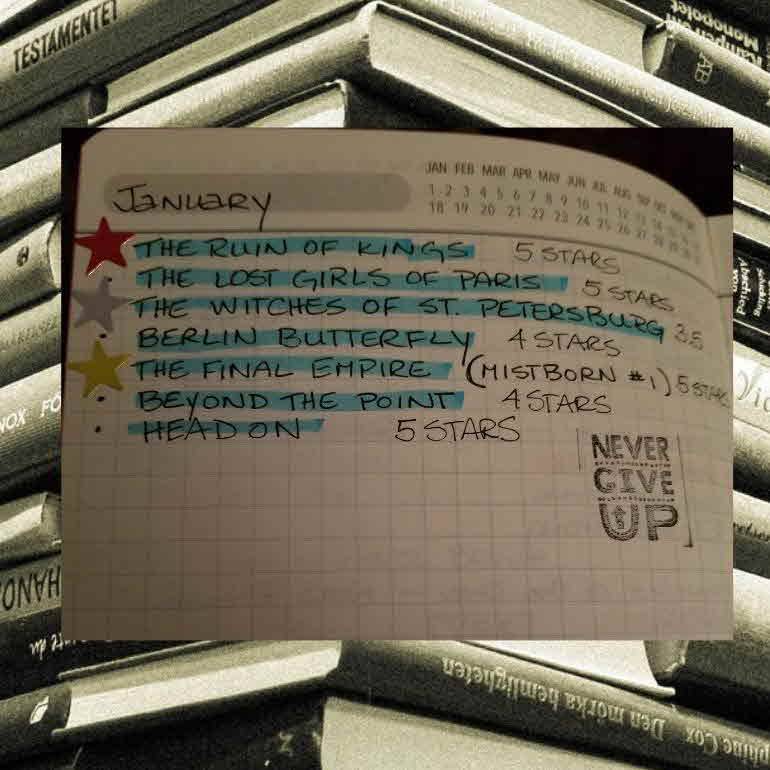 TESTAMENTET
Kampen om
Monopolet
JAN FEB MAR APR MAY JUN JUL AUG SEP OCT NOV DEC
January
1 2 3 4 5 6 7 8 9 10 11 12 13 14 15 16 17
18 19 20 21 22 23 24 25 26 27 28 29 30 31
THE RUIN OF KINGS 5 STARS
THE LOST GIRLS OF PARIS 5 STARS
THE WITCHES OF ST. PETERSBURG 3.5
BERLIN BUTTERFLY 4 STARS
THE FINAL EMPIRE (MISTBORN #1) 5 STARS
BEYOND THE POINT 4 STARS
HEAD ON 5 STARS
NEVER
GIVE
UP
Den mörka hemligheten